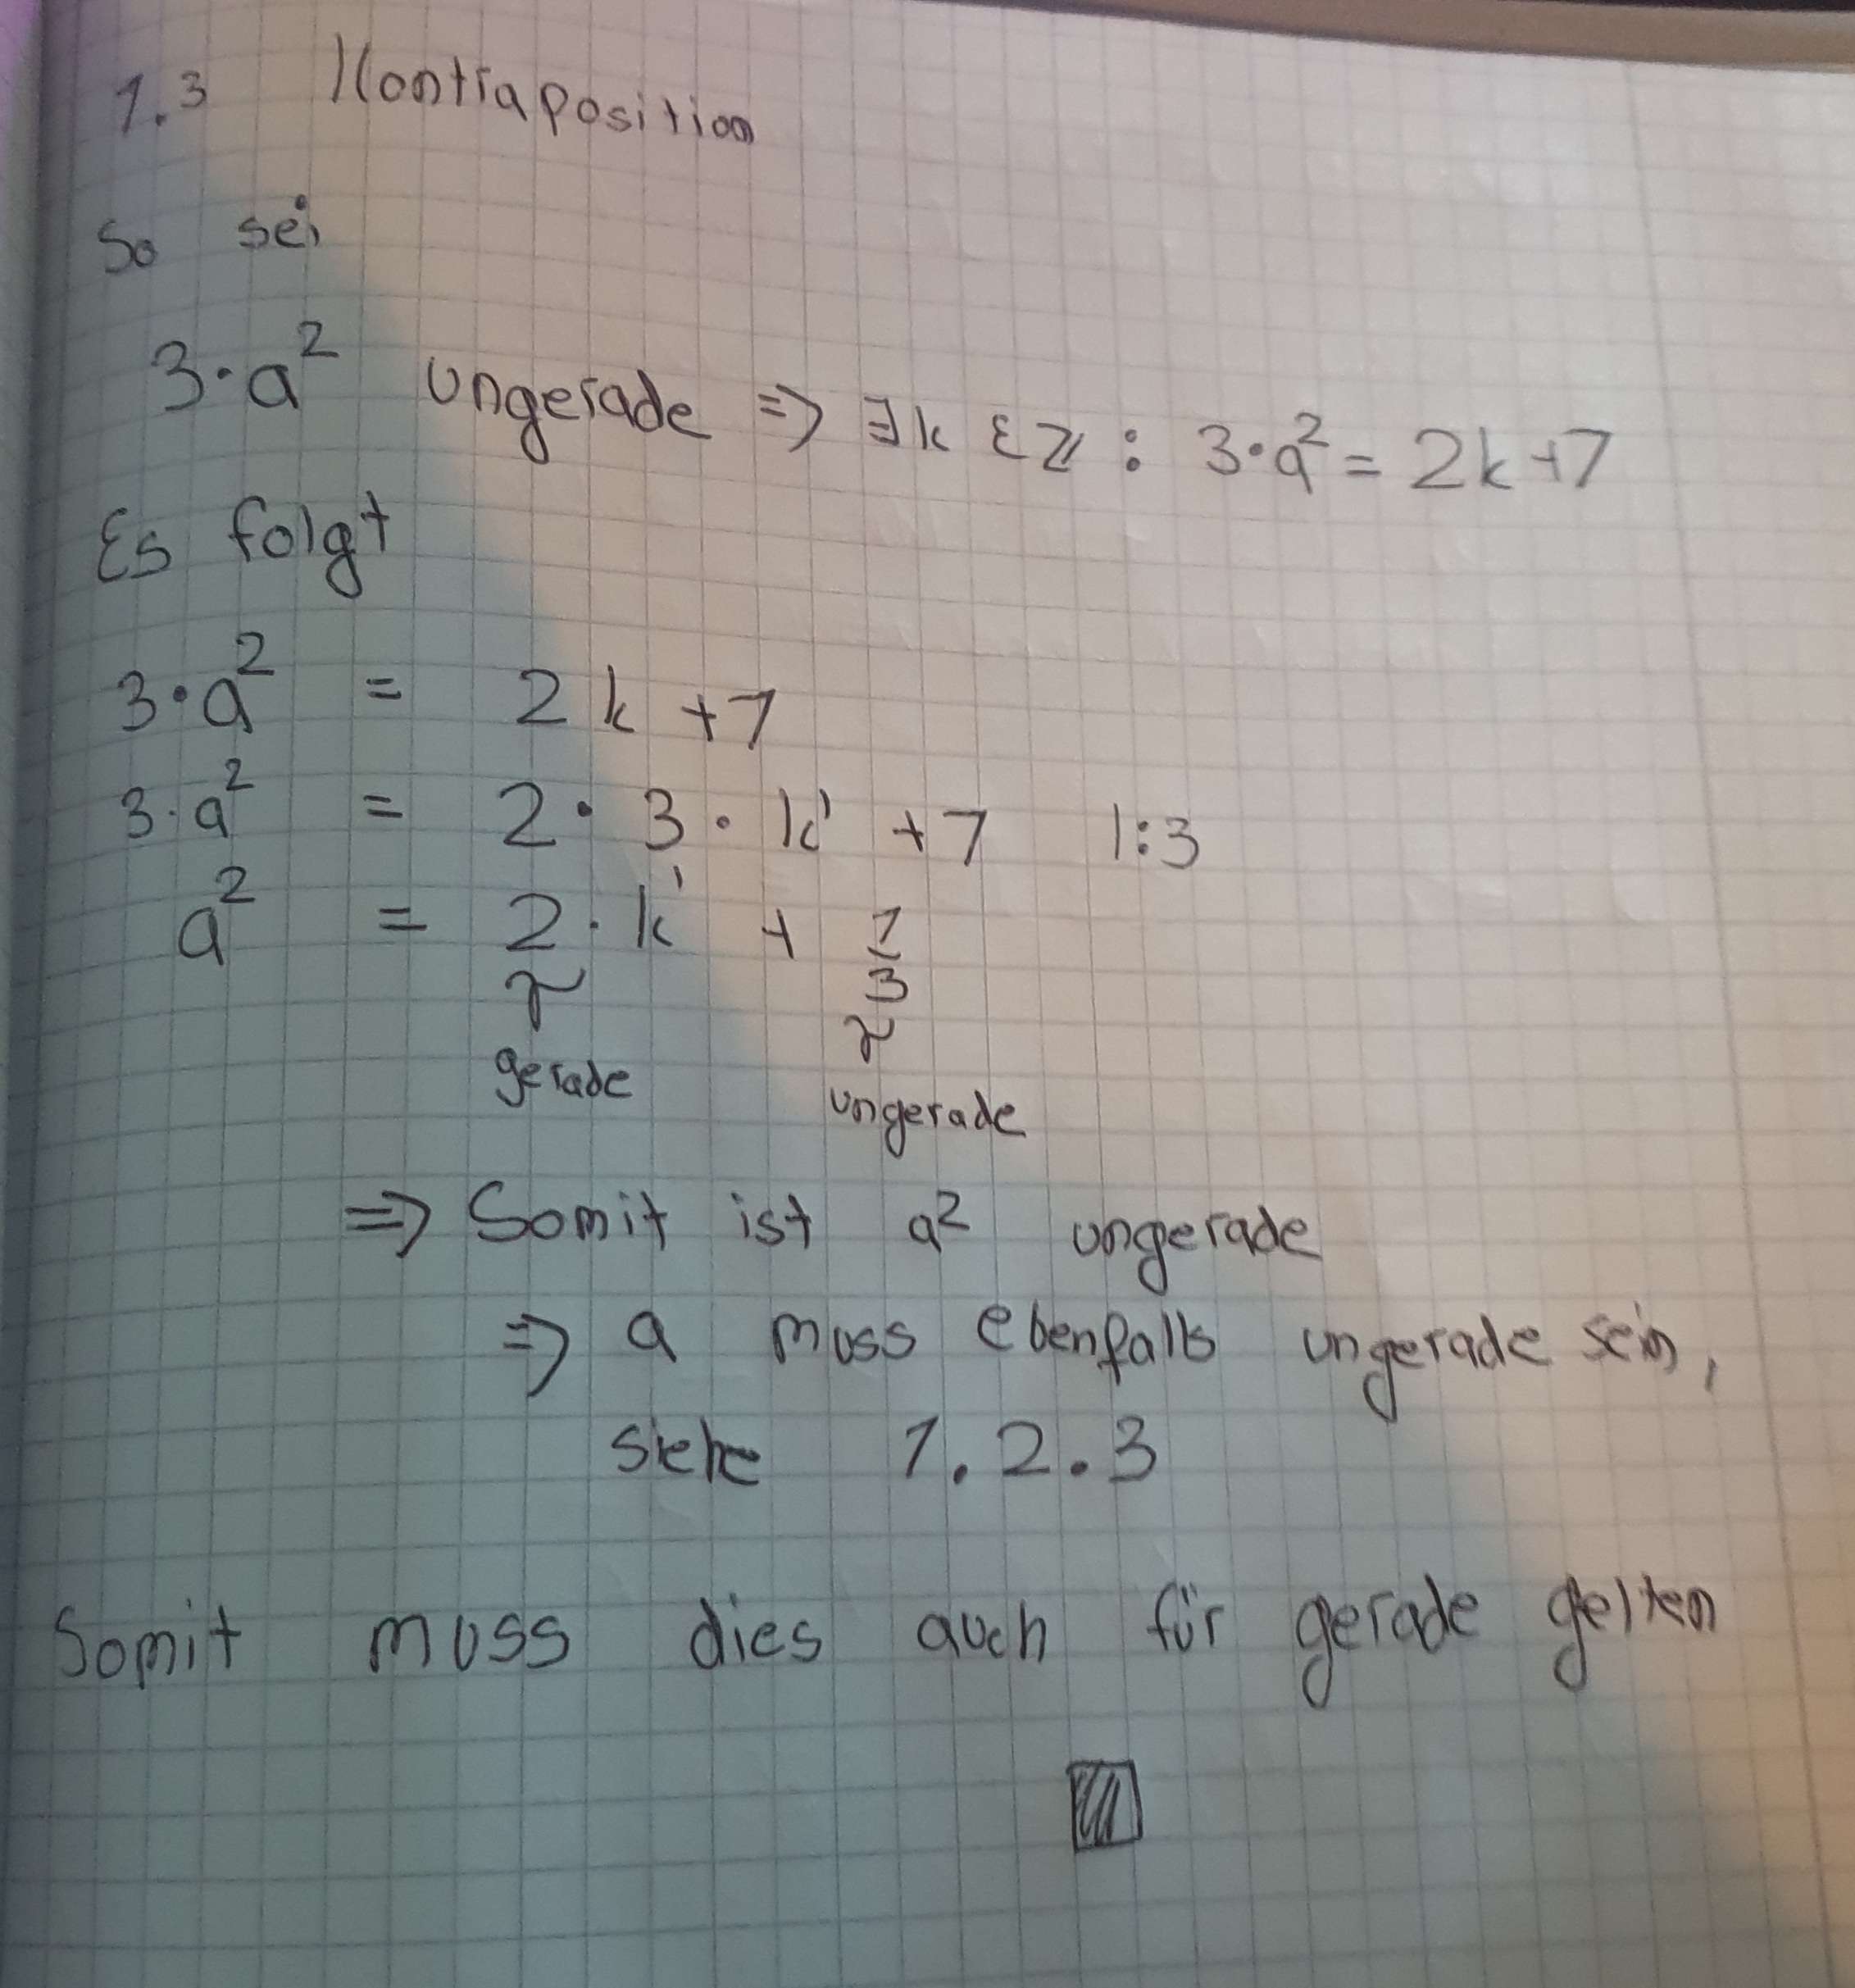 1.3 Kontraposition
So sei
3·a² ungerade => ∃k ∈ ℤ : 3·a² = 2k+1
Es folgt
3·a² = 2k +1
3·a² = 2·3·k' +1 |:3
a² = 2·k' + 1/3
gerade ungerade
=> Somit ist a² ungerade
=> a muss ebenfalls ungerade sein,
siehe 1.2.3
Somit muss dies auch für gerade gelten